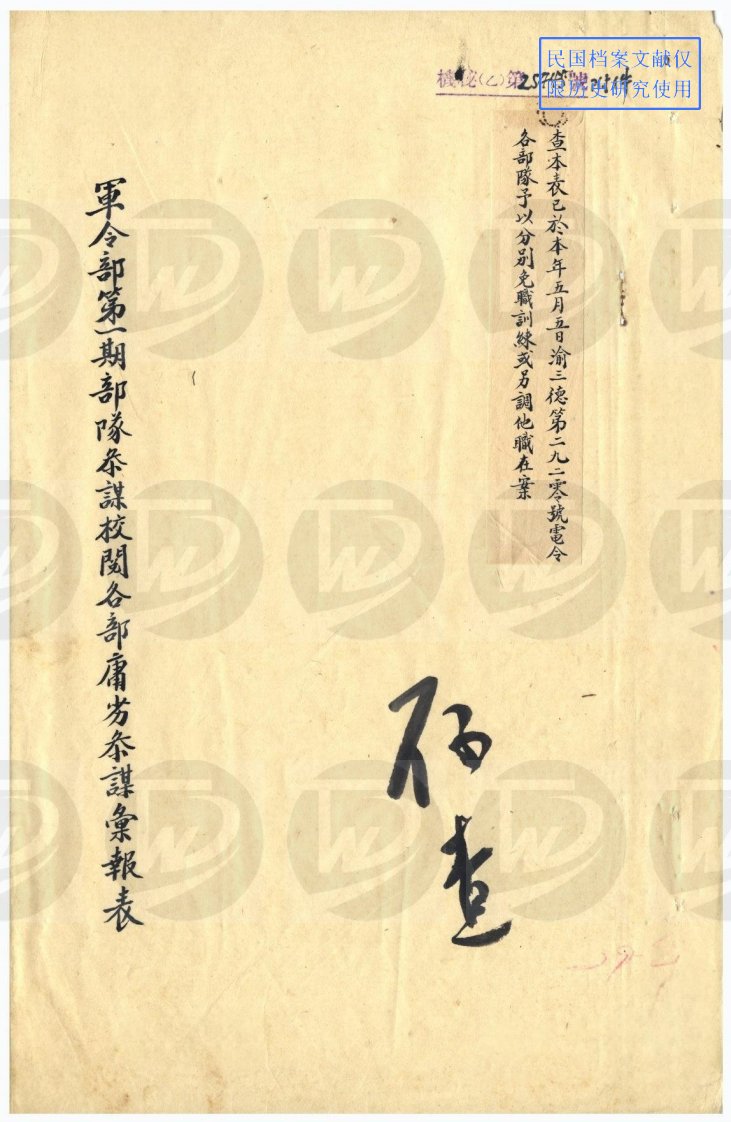 民国档案文献仅
限历史研究使用
機秘(乙)第 號
查本表已於本年五月五日渝三德第二九二零號電令
各部隊予以分別免職訓練或另調他職在案
存查
軍令部第一期部隊叅謀校閱各部庸劣叅謀彙報表